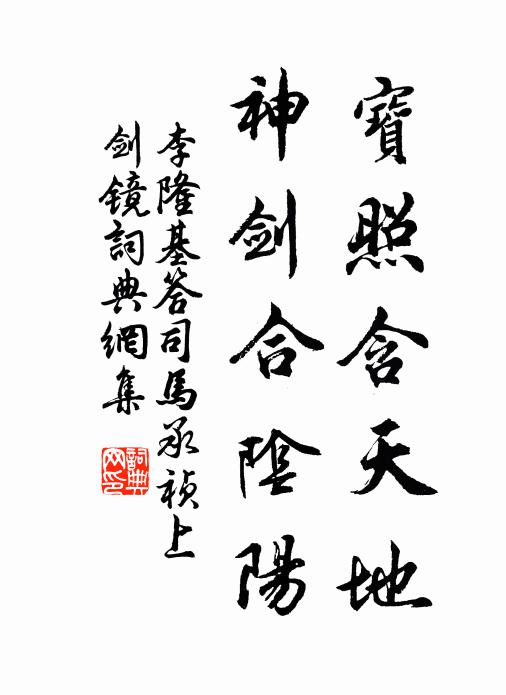 寶照含天地
神剑合陰陽
李隆基答司馬承禎上
剑镜詞典網集
詞典网印